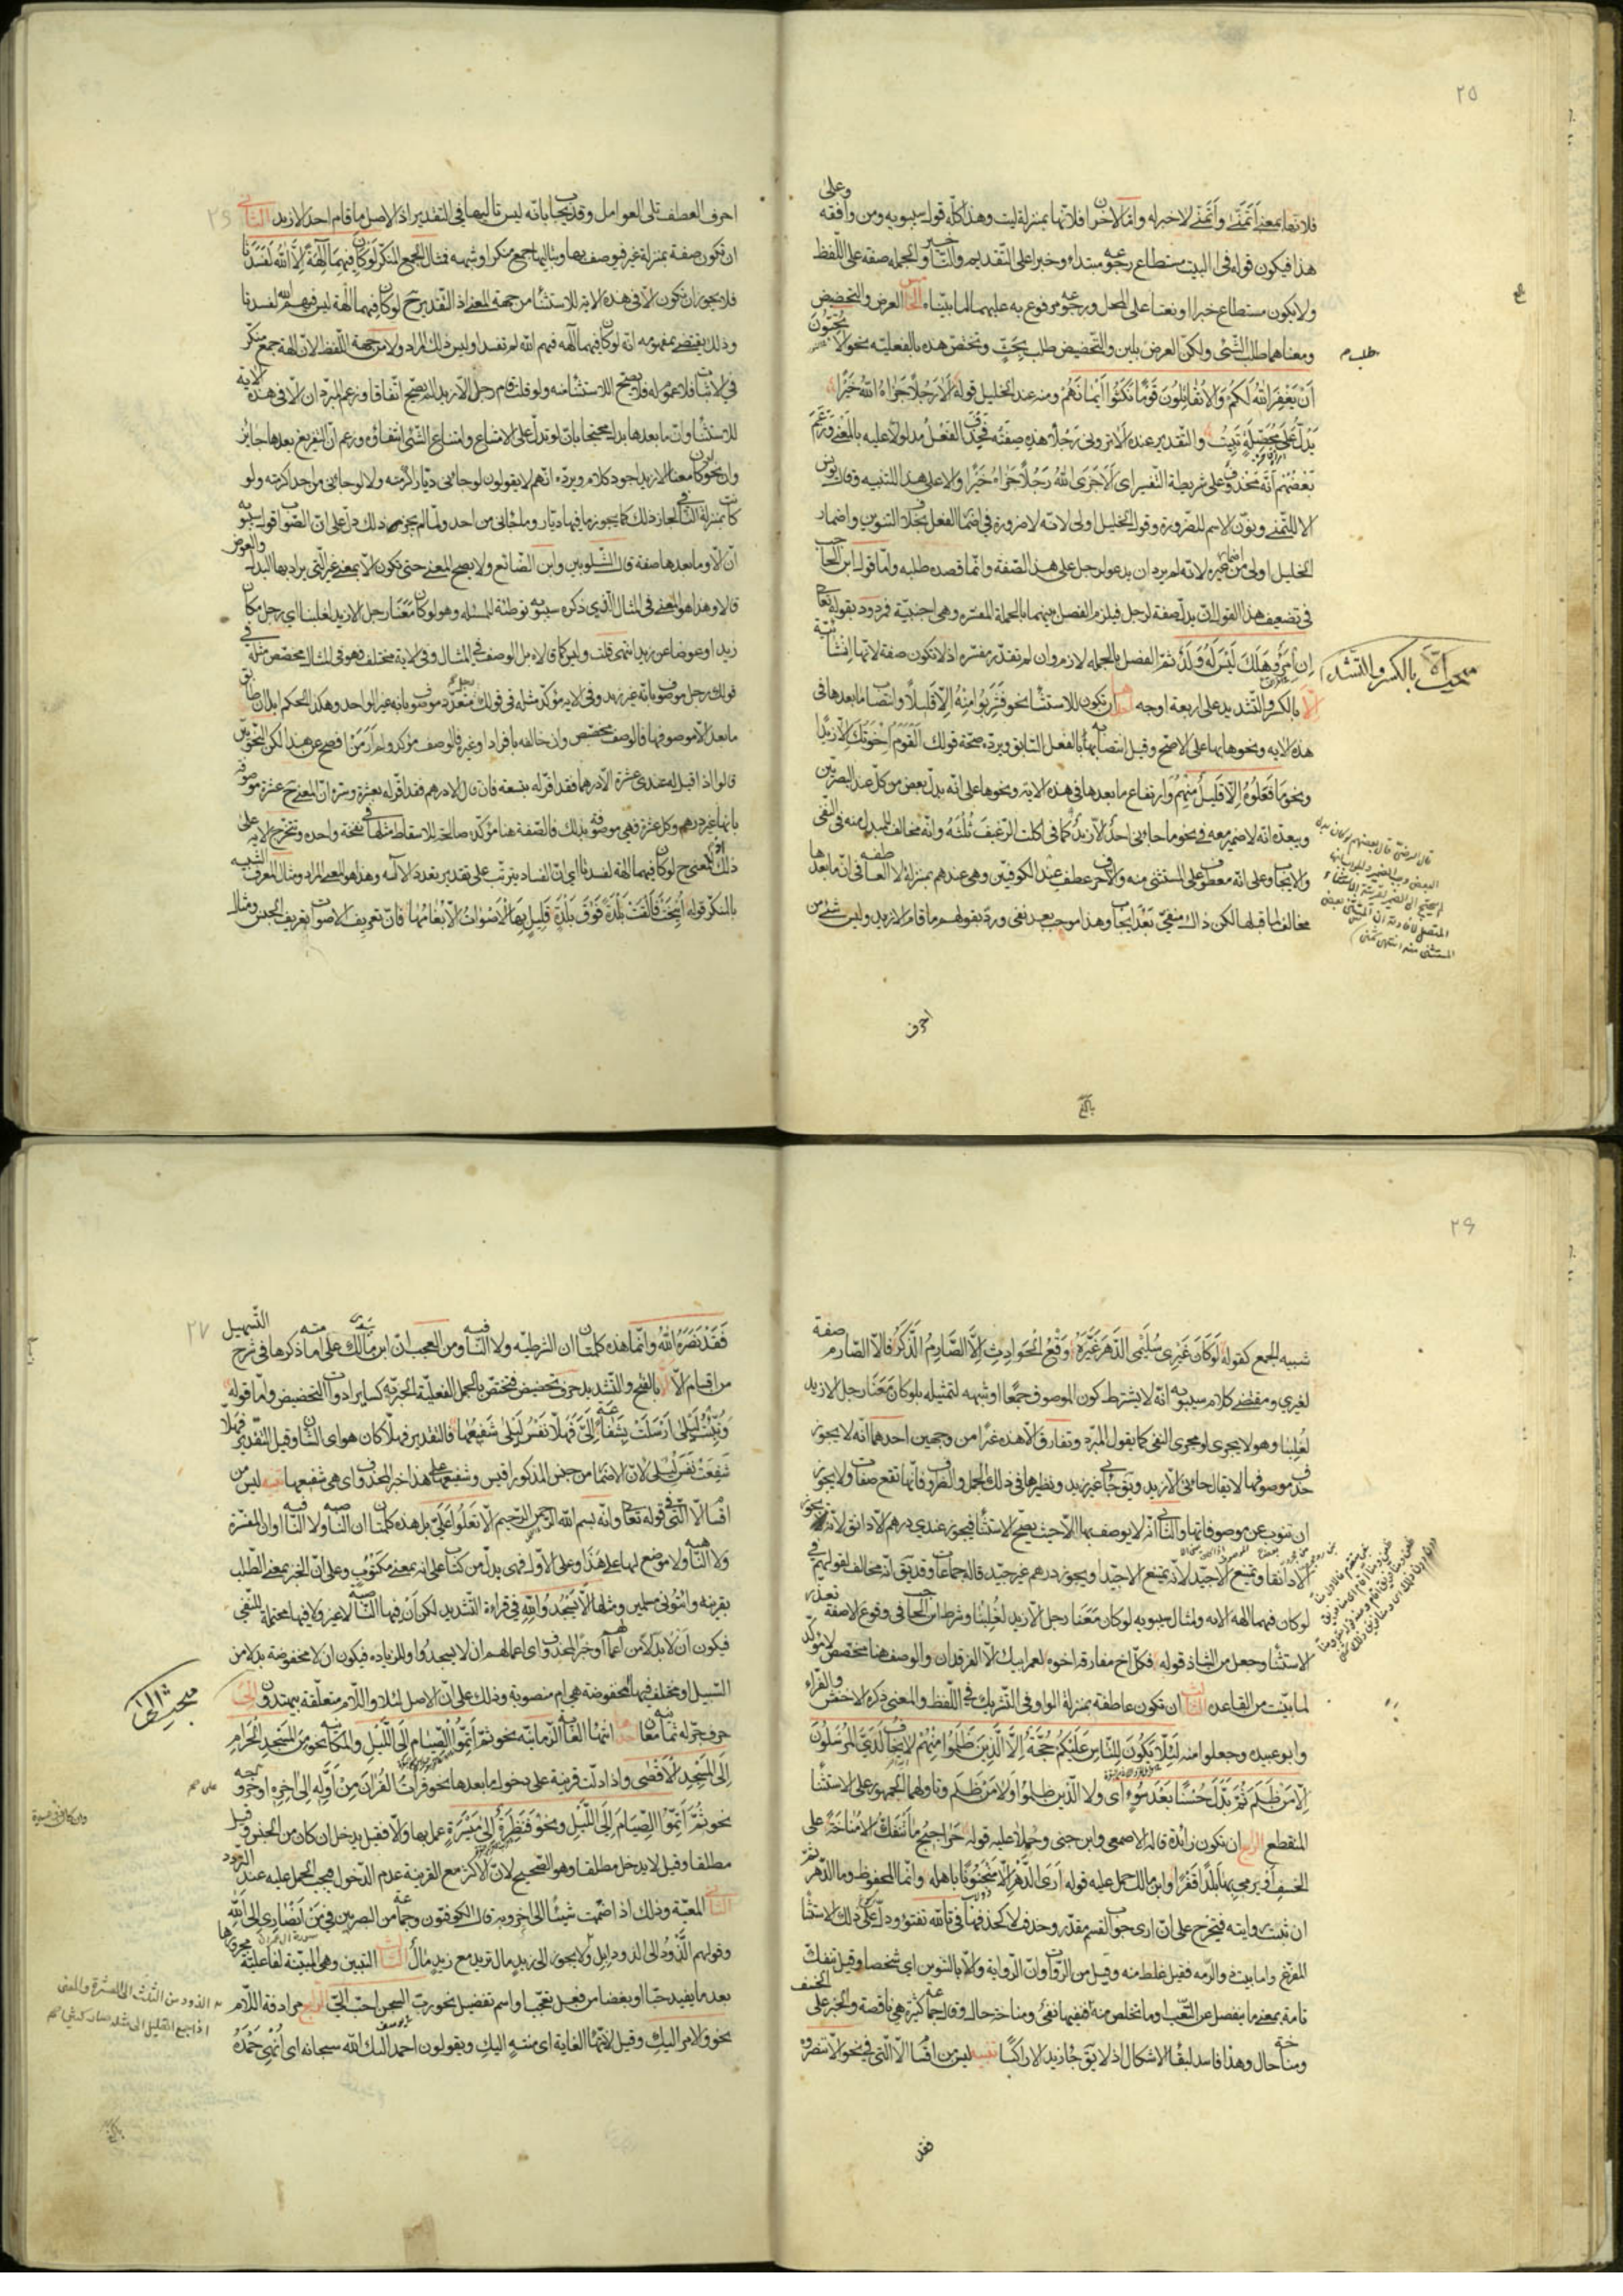 ٢٥
فلانها بمعنى أتمنى وأتمنى لا خبر له واما الآخران فلانها بمنزلة ليت وهذا كله قول سيبويه ومن وافقه وعلى
هذا فيكون قوله في البيت مستطاع رجوعه مبتداء وخبرا على التقديم والتأخير والجملة صفة على اللفظ
ولا يكون مستطاع خبرا او نعتا على المحل ورجوعه مرفوع به عليهما لما بيناه الخامس العرض والتحضيض
ومعناهما طلب الشئ ولكن العرض بلين والتحضيض طلب بحث وتختص هذه بالفعلية نحو الا تحبون
أن يغفر الله لكم والا تقاتلون قوما نكثوا أيمانهم ومنه عند الخليل قوله ألا رجلا جزاه الله خيرا
يدل على محصلة تبيت والتقدير عنده الا تروني رجلا هذه صفته فحذف الفعل مدلولا عليه بالمعنى وزعم
بعضهم أنه محذوف على شريطة التفسير اى ألا جزى الله رجلا جزاه خيرا والا على هذا للتنبيه وقال يونس
الا للتمنى ونون الاسم للضرورة وقول الخليل اولى لانه لا ضرورة في اضمار الفعل بخلاف التنوين واضمار
الخليل اولى من اضمار غيره لانه لم يرد ان يدعو لرجل على هذه الصفة وانما قصده طلبه واما قول ابن الحاجب
في تضعيف هذا القول ان يدل صفة لرجل فيلزم الفصل بينهما بالجملة المفسرة وهى اجنبية فمردود بقوله تعالى
إن امرؤ هلك ليس له ولد ثم الفصل بالجملة لازم وان لم نقدر مفسرة اذ لا تكون صفة لانها انشائية
إلا بالكسر والتشديد على اربعة اوجه احدها ان تكون للاستثناء نحو فشربوا منه إلا قليلا وانتصاب ما بعدها في
هذه الاية ونحوها بها على الاصح وقيل انتصابه بالفعل السابق ويرده صحة قولك القوم اخوتك الا زيدا
ونحو ما فعلوه إلا قليل منهم وارتفاع ما بعدها في هذه الاية ونحوها على انه بدل بعض من كل عند البصريين
ويبعده انه لا ضمير معه في نحو ما جاءنى احد الا زيد كما في اكلت الرغيف ثلثه وانه مخالف للمبدل منه في النفى
والايجاب وعلى انه معطوف على المستثنى منه والا حرف عطف عند الكوفيين وهى عندهم بمنزلة لا العاطفة في ان ما بعدها
مخالف لما قبلها لكن ذاك منفى بعد ايجاب وهذا موجب بعد نفى ورد بقولهم ما قام الا زيد وليس شئ من
احرف
مبحث إلا بالكسر والتشديد
٢٦
احرف العطف تلى العوامل وقد يجاب بانه ليس تاليها في التقدير اذ الاصل ما قام احد الا زيد الثاني
ان تكون صفة بمنزلة غير فيوصف بها وبتاليها جمع منكر او شبهه فمثال الجمع المنكر لو كان فيهما آلهة إلا الله لفسدتا
فلا يجوز ان تكون الا في هذه الاية للاستثناء من جهة المعنى اذ التقدير ح لو كان فيهما آلهة ليس فيهم الله لفسدتا
وذلك يقتضى بمفهومه انه لو كان فيهما آلهة فيهم الله لم تفسدا وليس ذلك المراد ولا من جهة اللفظ لان آلهة جمع منكر
في الاثبات فلا عموم له فلا يصح الاستثناء منه ولو قلت قام رجل الا زيد لم يصح اتفاقا وزعم المبرد ان الا في هذه الاية
للاستثناء وان ما بعدها بدل محتجا بان لو تدل على الامتناع وامتناع الشئ انتفاؤه وزعم ان التفريغ بعدها جايز
وان نحو لو كان معنا الا زيد اجود كلام ويرده انهم لا يقولون لو جاءنى ديار اكرمته ولا لو جاءنى من احد اكرمته ولو
كانت بمنزلة النافي لجاز ذلك كما يجوز ما فيها ديار وما جاءنى من احد ولما لم يجز ذلك دل على ان الصواب قول سيبويه
ان الا وما بعدها صفة قال الشلوبين وابن الضائع ولا يصح المعنى حتى تكون الا بمعنى غير التى يراد بها البدل والعوض
قالا وهذا هو المعنى في المثال الذى ذكره سيبويه توطئة للمسئلة وهو لو كان معنا رجل الا زيد لغلبنا اى رجل مكان
زيد او عوضا عن زيد انتهى قلت وليس كما قالاه بل الوصف في المثال وفى الاية مختلف فهو في المثال مخصص مثله في
قولك رجل موصوف بانه غير زيد وفى الاية مؤكد مثله في قولك متعدد موصوف بانه غير الواحد وهكذا الحكم ابدا ان طابق
ما بعد الا موصوفها فالوصف مخصص وان خالفه بافراد او غيره فالوصف مؤكد ولم أر من افصح عن هذا لكن النحويين
قالوا اذا قيل له عندى عشرة الا درهما فقد اقر له بتسعة فان قال الا درهم فقد اقر له بعشرة وسره ان المعنى ح عشرة موصوفة
بانها غير درهم وكل عشرة فهى موصوفة بذلك فالصفة هنا مؤكدة صالحة للاسقاط مثلها في نفخة واحدة وتتخرج الاية على
ذلك اذ المعنى ح لو كان فيهما آلهة لفسدتا اى ان الفساد يترتب على تقدير تعدد الآلهة وهذا هو المعنى المراد ومثال المعرف الشبيه
بالمنكر قوله أنيخت فألقت بلدة فوق بلدة قليل بها الاصوات إلا بغامها فان تعريف الاصوات تعريف الجنس ومثال
٢٦
شبيه الجمع كقوله لو كان غيرى سليمى الدهر غيره وقع الحوادث إلا الصارم الذكر فالا الصارم صفة
لغيرى ومقتضى كلام سيبويه انه لا يشترط كون الموصوف جمعا او شبهه لتمثيله بلو كان معنا رجل الا زيد
لغلبنا وهو لا يجرى لو مجرى النفى كما يقول المبرد وتفارق الا هذه غيرا من وجهين احدهما انه لا يجوز
حذف موصوفها لا يقال جاءنى الا زيد ويقال جاءنى غير زيد ونظيرها في ذلك الجمل والظروف فانها تقع صفات ولا يجوز
ان تنوب عن موصوفاتها والثاني انه لا يوصف بها الا حيث يصح الاستثناء فيجوز عندى درهم الا دانق لانه يجوز
الا دانقا ويمتنع الا جيد لانه يمتنع الا جيدا ويجوز درهم غير جيد قاله جماعات وقد يقال انه مخالف لقولهم في
لو كان فيهما آلهة الاية ولمثال سيبويه لو كان معنا رجل الا زيد لغلبنا وشرط ابن الحاجب في وقوع الا صفة تعذر
الاستثناء وجعل من الشاذ قوله فكل اخ مفارقه اخوه لعمر ابيك الا الفرقدان والوصف هنا مخصص لا مؤكد
لما بينت من القاعدة الثالث ان تكون عاطفة بمنزلة الواو في التشريك في اللفظ والمعنى ذكره الاخفش والفراء
وابو عبيده وجعلوا منه لئلا يكون للناس عليكم حجة إلا الذين ظلموا منهم لا يخاف لدى المرسلون
إلا من ظلم ثم بدل حسنا بعد سوء اى ولا الذين ظلموا ولا من ظلم وتاولهما الجمهور على الاستثناء
المنقطع الرابع ان تكون زائدة قاله الاصمعى وابن جنى وحملا عليه قوله حراجيج ما تنفك إلا مناخة على
الخسف أو نرمى بها بلدا قفرا وابن مالك حمل عليه قوله أرى الدهر إلا منجنونا باهله وانما المحفوظ وما الدهر ثم
ان ثبتت روايته فيتخرج على ان ارى جواب القسم مقدر وحذف لا كحذفها في تالله تفتؤ ودل على ذلك الاستثناء
المفرغ واما بيت ذى الرمه فقيل غلط منه وقيل من الرواة وان الرواية آلا بالتنوين اى شخصا وقيل تنفك
تامة بمعنى ما ينفصل عن التعب او ما تخلص منه فنفيها نفى ومناخة حال وقال جماعة كثيرة هى ناقصة والخبر على الخسف
ومناخة حال وهذا فاسد لبقاء الاشكال اذ لا يقال جاء زيد الا راكبا تنبيه ليس من اقسام الا التى في نحو إلا تنصروه
فقد
٢٧
فقد نصره الله وانما هذه كلمتان ان الشرطية ولا النافية ومن العجب ان ابن مالك على امامته ذكرها في شرح التسهيل
من اقسام الا ألا بالفتح والتشديد حرف تحضيض فتختص بالجمل الفعلية الخبرية كساير ادوات التحضيض واما قوله
ونبئت ليلى ارسلت بشفاعة إلى فهلا نفس ليلى شفيعها فالتقدير فهلا كان هو اى الشان وقيل التقدير فهلا
شفعت نفس ليلى لان الاضمار من جنس المذكور اقيس وشفيعها على هذا خبر لمحذوف اى هى شفيعها تنبيه ليس من
اقسام ألا التى في قوله تعالى وانه بسم الله الرحمن الرحيم ألا تعلوا على بل هذه كلمتان ان الناصبة ولا النافية او ان المفسرة
ولا الناهية ولا موضع لها على هذا وعلى الاول فهى بدل من كتاب على انه بمعنى مكتوب وعلى ان الخبر بمعنى الطلب
بقرينة وأتونى مسلمين ومثلها ألا يسجدوا لله في قراءة التشديد لكن أن فيها الناصبة لا غير ولا فيها محتملة للنفى
فيكون ألا بدلا من أعمالهم او خبرا لمحذوف اى اعمالهم ان لا يسجدوا وللزيادة فيكون ان لا مخفوضة بدلا من
السبيل او مختلف فيها أمخفوضة هى ام منصوبة وذلك على ان الاصل لئلا واللام متعلقة بيهتدون إلى
حرف جر له ثمانية معان احدها انتهاء الغاية الزمانية نحو ثم أتموا الصيام إلى الليل والمكانية نحو من المسجد الحرام
إلى المسجد الأقصى واذا دلت قرينة على دخول ما بعدها نحو قرأت القرآن من أوله إلى آخره او خروجه
نحو ثم أتموا الصيام إلى الليل ونحو فنظرة إلى ميسرة عمل بها والا فقيل يدخل ان كان من الجنس وقيل
مطلقا وقيل لا يدخل مطلقا وهو الصحيح لان الاكثر مع القرينة عدم الدخول فيجب الحمل عليه عند التردد
الثاني المعية وذلك اذا ضممت شيئا الى اخر وبه قال الكوفيون وجماعة من البصريين في من أنصارى إلى الله
وقولهم الذود الى الذود ابل ولا يجوز الى زيد مال تريد مع زيد مال الثالث التبيين وهى المبينة لفاعلية مجرورها
بعد ما يفيد حبا او بغضا من فعل تعجب او اسم تفضيل نحو رب السجن احب الى الرابع مرادفة اللام
نحو والامر اليك وقيل لانتهاء الغاية اى منته اليك ويقولون احمد اليك الله سبحانه اى انهى حمده
مبحث إلى
الذود من الثلاث الى العشرة والمعنى
اذا جمع القليل الى مثله صار كثيرا